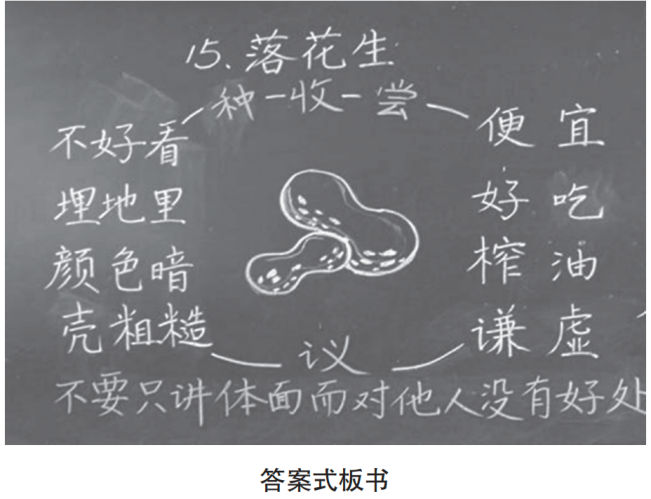 15.落花生
种-收-尝
不好看
埋地里
颜色暗
壳粗糙
便宜
好吃
榨油
谦虚
议
不要只讲体面而对他人没有好处
答案式板书